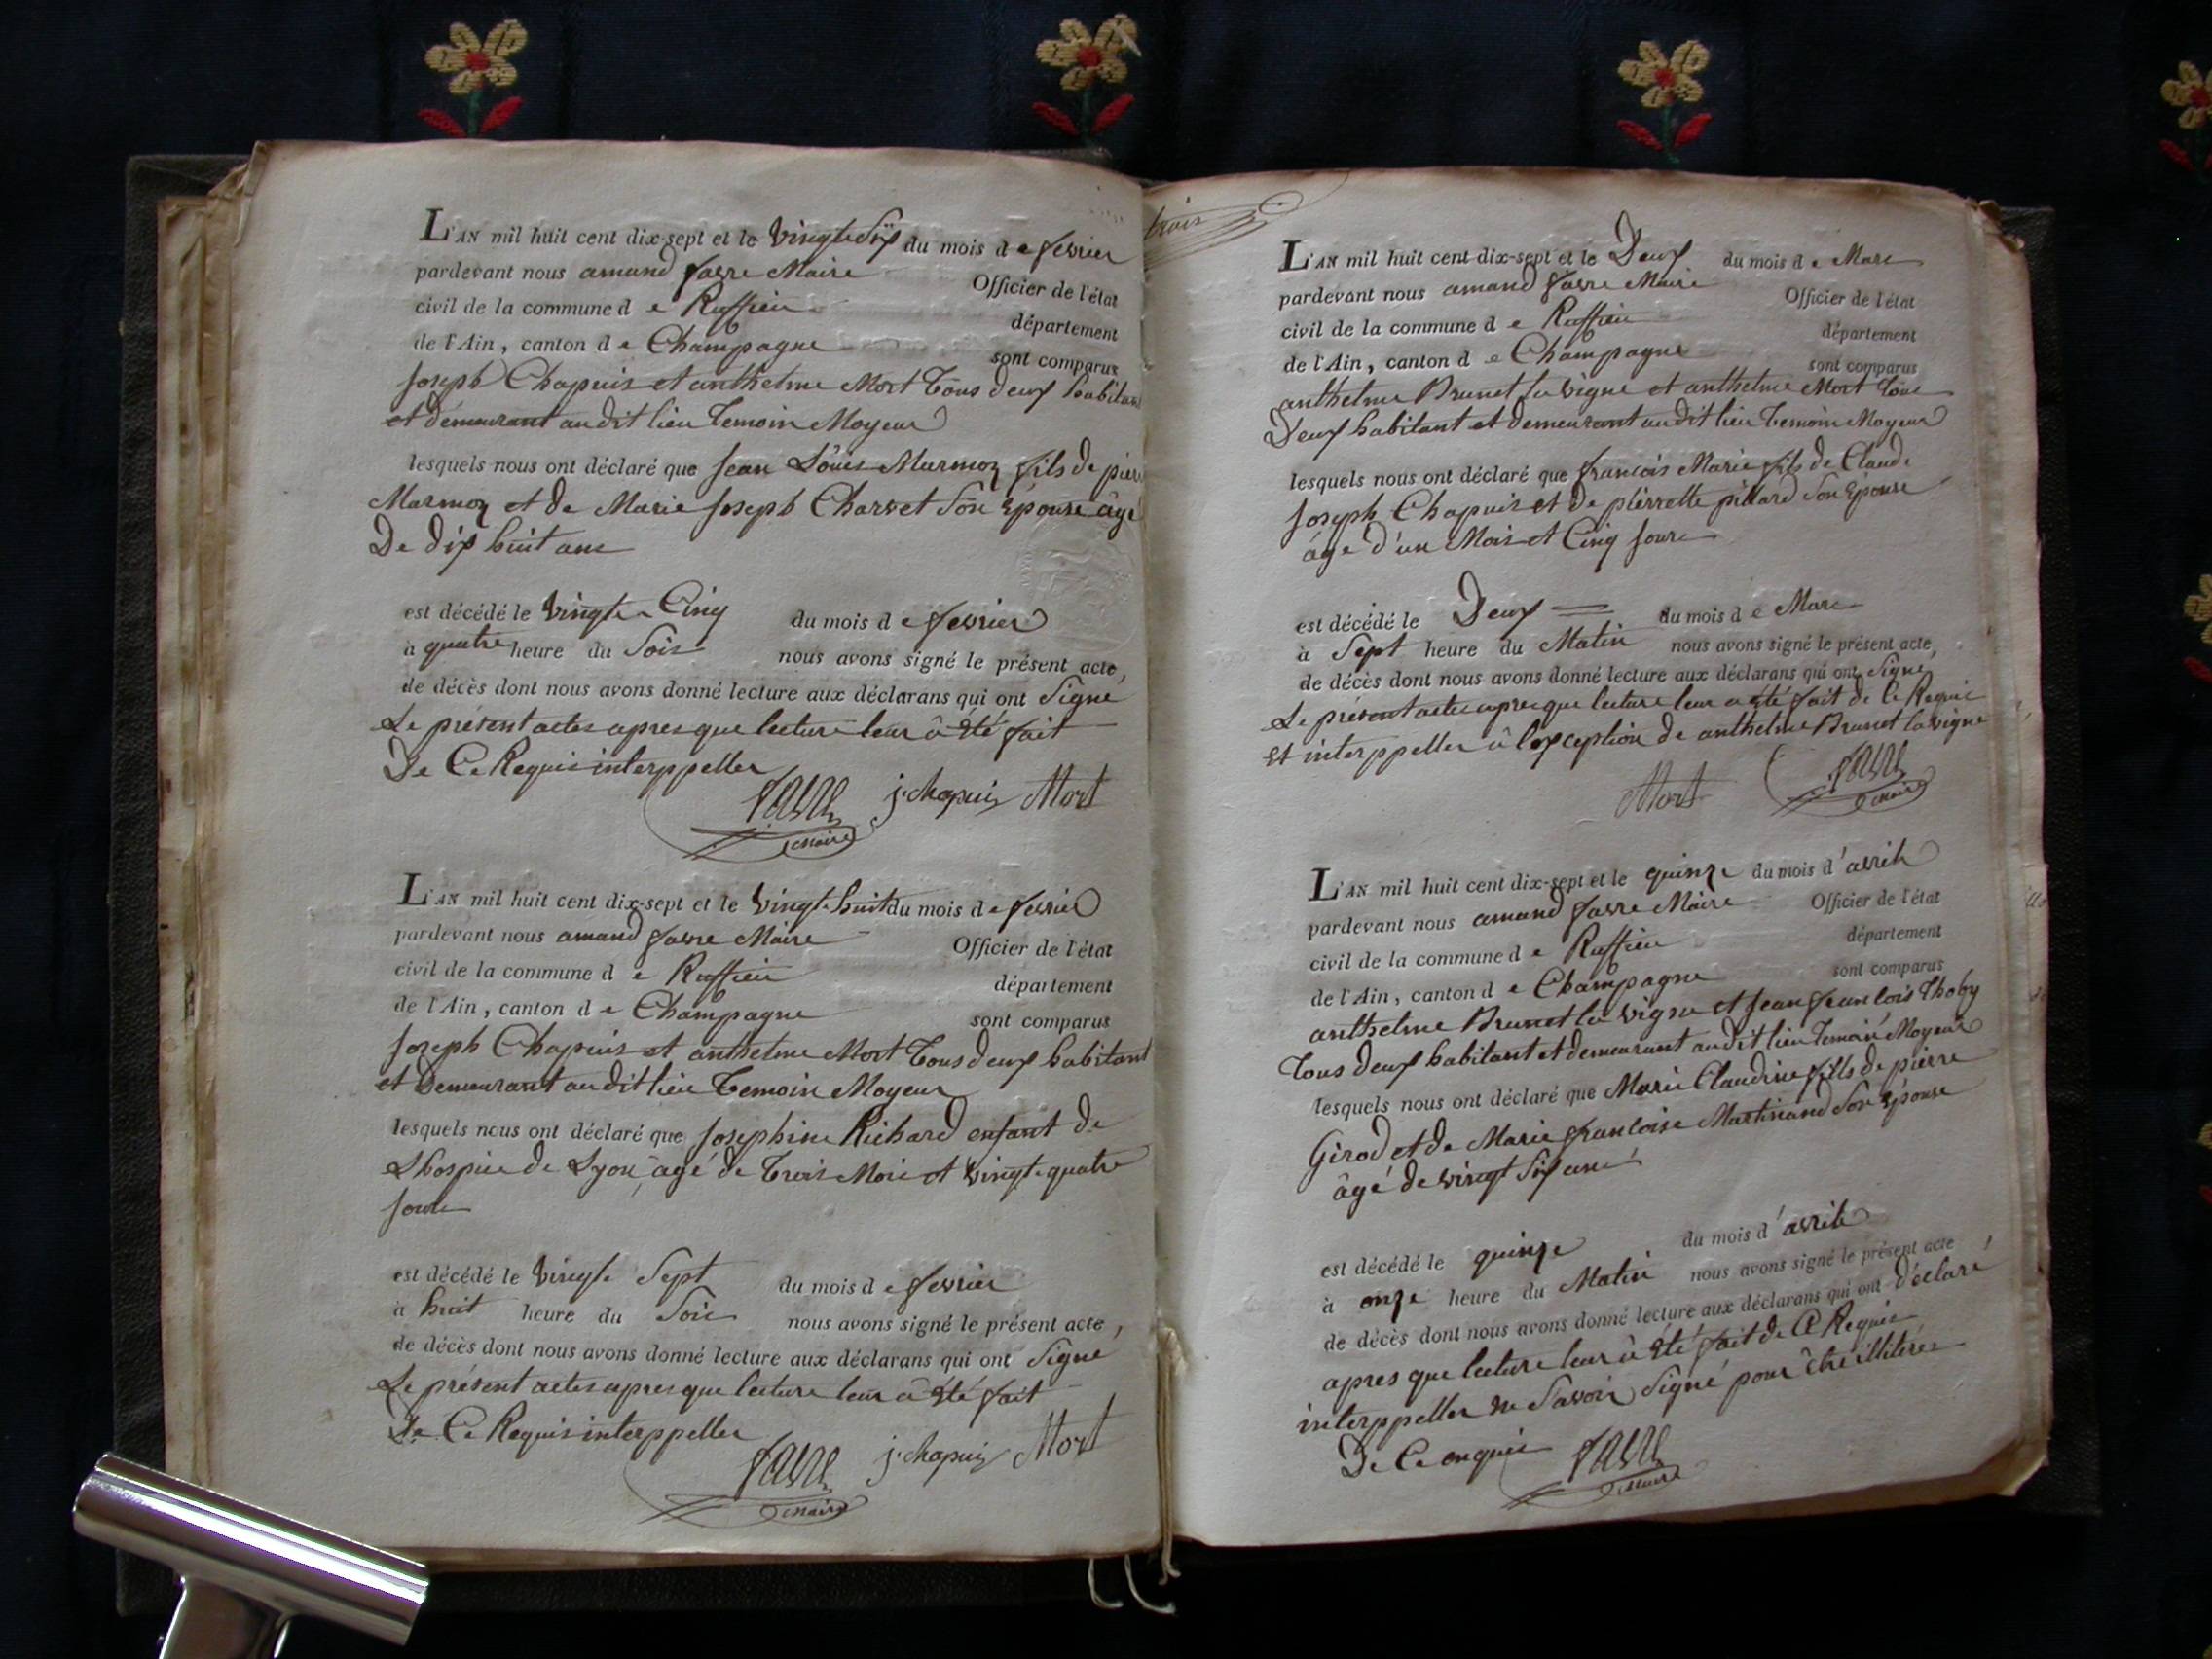 L'AN mil huit cent dix-sept et le vingt Six du mois de fevrier
pardevant nous amand favre Maire Officier de l'état
civil de la commune de Ruffieu département
de l'Ain, canton de Champagne sont comparus
Joseph Chapuis et anthelme Mort Tous deux habitant
et demeurant audit lieu Temoin Moyeur
lesquels nous ont déclaré que Jean Loûis Marmoz fils de pierre
Marmoz et de Marie Joseph Charvet Son Epouse âgé
De dix huit ans
est décédé le vingt Cinq du mois de fevrier
à quatre heure du Soir nous avons signé le présent acte,
de décès dont nous avons donné lecture aux déclarans qui ont Signe
Le present actes apres que lecture leur â Eté fait
De Ce Requis interppeller
favre maire j. chapuis Mort
L'AN mil huit cent dix-sept et le vingt huit du mois de fevrier
pardevant nous amand favre Maire Officier de l'état
civil de la commune de Ruffieu département
de l'Ain, canton de Champagne sont comparus
Joseph Chapuis et anthelme Mort Tous deux habitant
et Demeurant audit lieu Temoin Moyeur
lesquels nous ont déclaré que Josephine Richard enfant de
Lhospice de Lyon âgé de Trois Mois et vingt quatre
Jours
est décédé le vingt Sept du mois de fevrier
à huit heure du Soir nous avons signé le présent acte,
de décès dont nous avons donné lecture aux déclarans qui ont Signe
Le present actes apres que lecture leur â Eté fait
De Ce Requis interppeller
favre maire j. chapuis Mort
trois
L'AN mil huit cent dix-sept et le Deux du mois de Mars
pardevant nous amand favre Maire Officier de l'état
civil de la commune de Ruffieu département
de l'Ain, canton de Champagne sont comparus
anthelme Brunet la vigne et anthelme Mort Tous
Deux habitant et demeurant audit lieu Temoin Moyeur
lesquels nous ont déclaré que francois Marie fils de Claude
Joseph Chapuis et de pierrette pillard Son Epouse
âge d'un Mois et Cinq Jours
est décédé le Deux du mois de Mars
à Sept heure du Matin nous avons signé le présent acte,
de décès dont nous avons donné lecture aux déclarans qui ont Signe
Le present actes apres que lecture leur a Eté fait de Ce Requis
Et interppeller â lexception de anthelme Brunet la vigne
Mort favre maire
L'AN mil huit cent dix-sept et le quinze du mois d'avril
pardevant nous amand favre Maire Officier de l'état
civil de la commune de Ruffieu département
de l'Ain, canton de Champagne sont comparus
anthelme Brunet la vigne et Jean francois Thoby
Tous deux habitant et demeurant audit lieu Temoin Moyeur
lesquels nous ont déclaré que Marie Claudine fille de pierre
Girod et de Marie francoise Martinand Son Epouse
âgé de vingt Six ans
est décédé le quinze du mois d'avril
à onze heure du Matin nous avons signé le présent acte
de décès dont nous avons donné lecture aux déclarans qui ont déclaré
apres que lecture leur â Eté fait de Ce Requis
interppeller ne Savoir Signé pour être illiterés
De Ce enquis favre maire